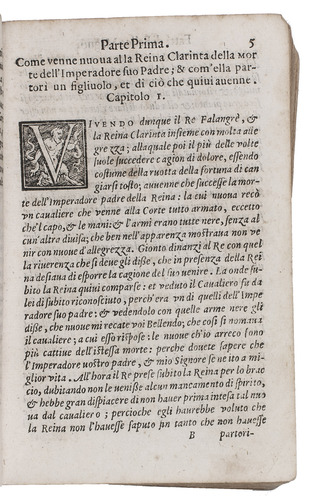 Parte Prima. 5
Come venne nuoua alla Reina Clarinta della Mor
te dell'Imperadore suo Padre; & com'ella par-
torì un figliuolo, et di ciò che quiui auenne.
Capitolo I.
VIVENDO dunque il Re Falangrè, &
la Reina Clarinta insieme con molta alle
grezza; alla quale poi il più delle volte
suole succedere cagion di dolore, essendo
costume della ruotta della fortuna di can
giarsi tosto; auuenne che successe la mor-
te dell'Imperadore padre della Reina: la cui nuoua recò
vn caualiere che venne alla Corte tutto armato, eccetto
che'l capo, & le mani: & l'armi erano tutte nere, senza al
cun'altra diuisa; che ben nell'apparenza mostraua non ve
nir con nuoue d'allegrezza. Gionto dinanzi al Re con quel
la riuerenza che si deue gli disse, che in presenza della Rei
na desiaua di esporre la cagione del suo uenire. La onde su-
bito la Reina quiui comparse: et veduto il Caualiero fu da
lei di subito riconosciuto, perch'era vn di quelli dell'Impe
rador suo padre: & vedendolo con quelle arme nere gli
disse, che nuoue mi recate voi Bellendo; che così si nomaua
il caualiere; a cui esso rispose: le nuoue ch'io arreco sono
più cattiue dell'istessa morte: perche douete sapere che
l'Imperadore uostro padre, & mio Signore se ne ito a mi-
glior vita. All'hora il Re prese subito la Reina per lo brac
cio, dubitando non le uenisse alcun mancamento di spirito,
& hebbe gran dispiacere di non hauer prima intesa tal nuo
ua dal caualiero; percioche egli haurebbe voluto che
la Reina non l'hauesse saputo fin tanto che non hauesse
B partori-